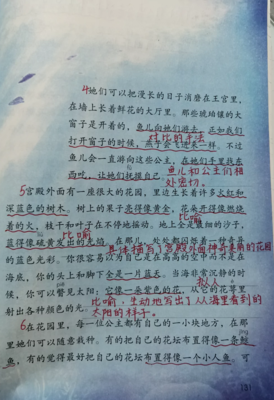 4她们可以把漫长的日子消磨在王宫里,
在墙上长着鲜花的大厅里。那些琥珀镶的大
窗子是开着的,鱼儿向她们游去,正如我们
对比的手法
打开窗子的时候,燕子会飞进来一样。不过
鱼儿会一直游向这些公主,在她们手里找东
西吃,让她们抚摸自己。鱼儿和公主们相
处密切。
5宫殿外面有一座很大的花园,里边生长着许多火红和
深蓝色的树木,树上的果子亮得像黄金,花朵开得像燃烧
比喻
着的火,枝子和叶子在不停地摇动。地上全是最细的沙子,
比喻
蓝得像硫黄发出的光焰。在那儿,处处都闪着一种奇异
具体描写了宫殿外面神奇美丽的花园
的蓝色光彩。你很容易以为自己是在高高的空中而不是在
海底,你的头上和脚下全是一片蓝天。当海非常沉静的时
拟人
候,你可以瞥见太阳:它像一朵紫色的花,从它的花萼里
射出各种颜色的光。比喻:生动地写出了从海里看到的
太阳的样子。
6在花园里,每一位公主都有自己的一小块地方,在那
里她们可以随意栽种。有的把自己的花坛布置得像一条鲸
鱼,有的觉得最好把自己的花坛布置得像一个小人鱼。可
151